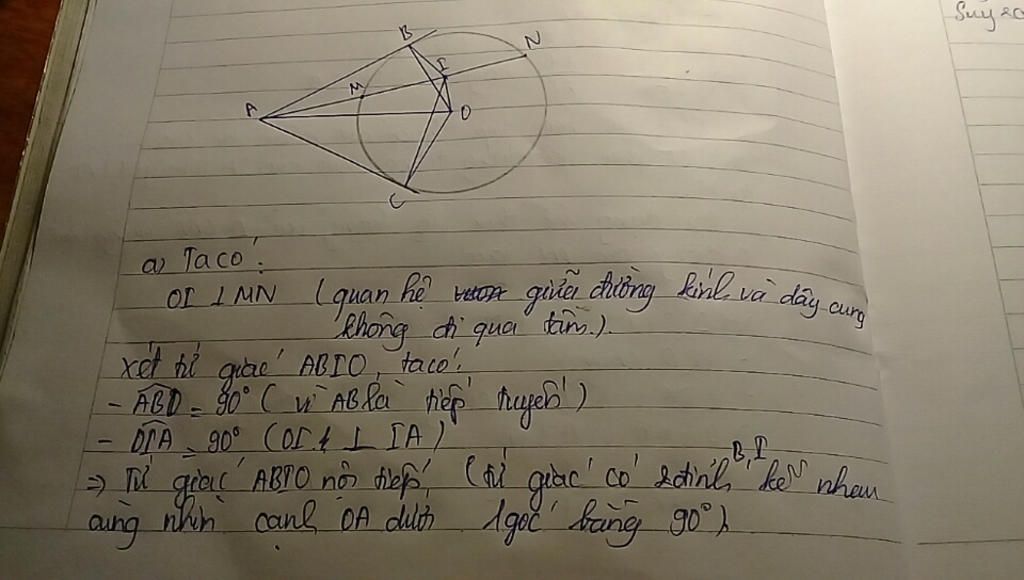 Suy ra
B
N
I
M
A
O
C
a) Ta có:
OI ⊥ MN (quan hệ giữa đường kính và dây cung
không đi qua tâm).
Xét tứ giác ABIO, ta có:
- ABO = 90° (vì AB là tiếp tuyến)
- OIA = 90° (OI ⊥ IA)
B, I
=> Tứ giác ABIO nội tiếp, (tứ giác có 2 đỉnh kề nhau
cùng nhìn cạnh OA dưới 1 góc bằng 90°).